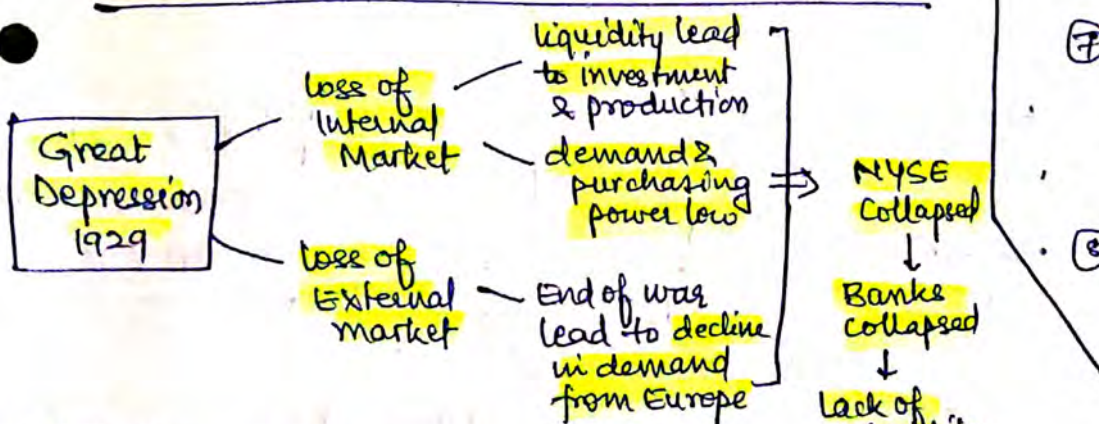 Great
Depression
1929
Loss of
Internal
Market
liquidity lead
to investment
& production
demand &
purchasing
power low
Loss of
External
market
End of war
lead to decline
in demand
from Europe
NYSE
Collapsed
Banks
Collapsed
Lack of
7
8